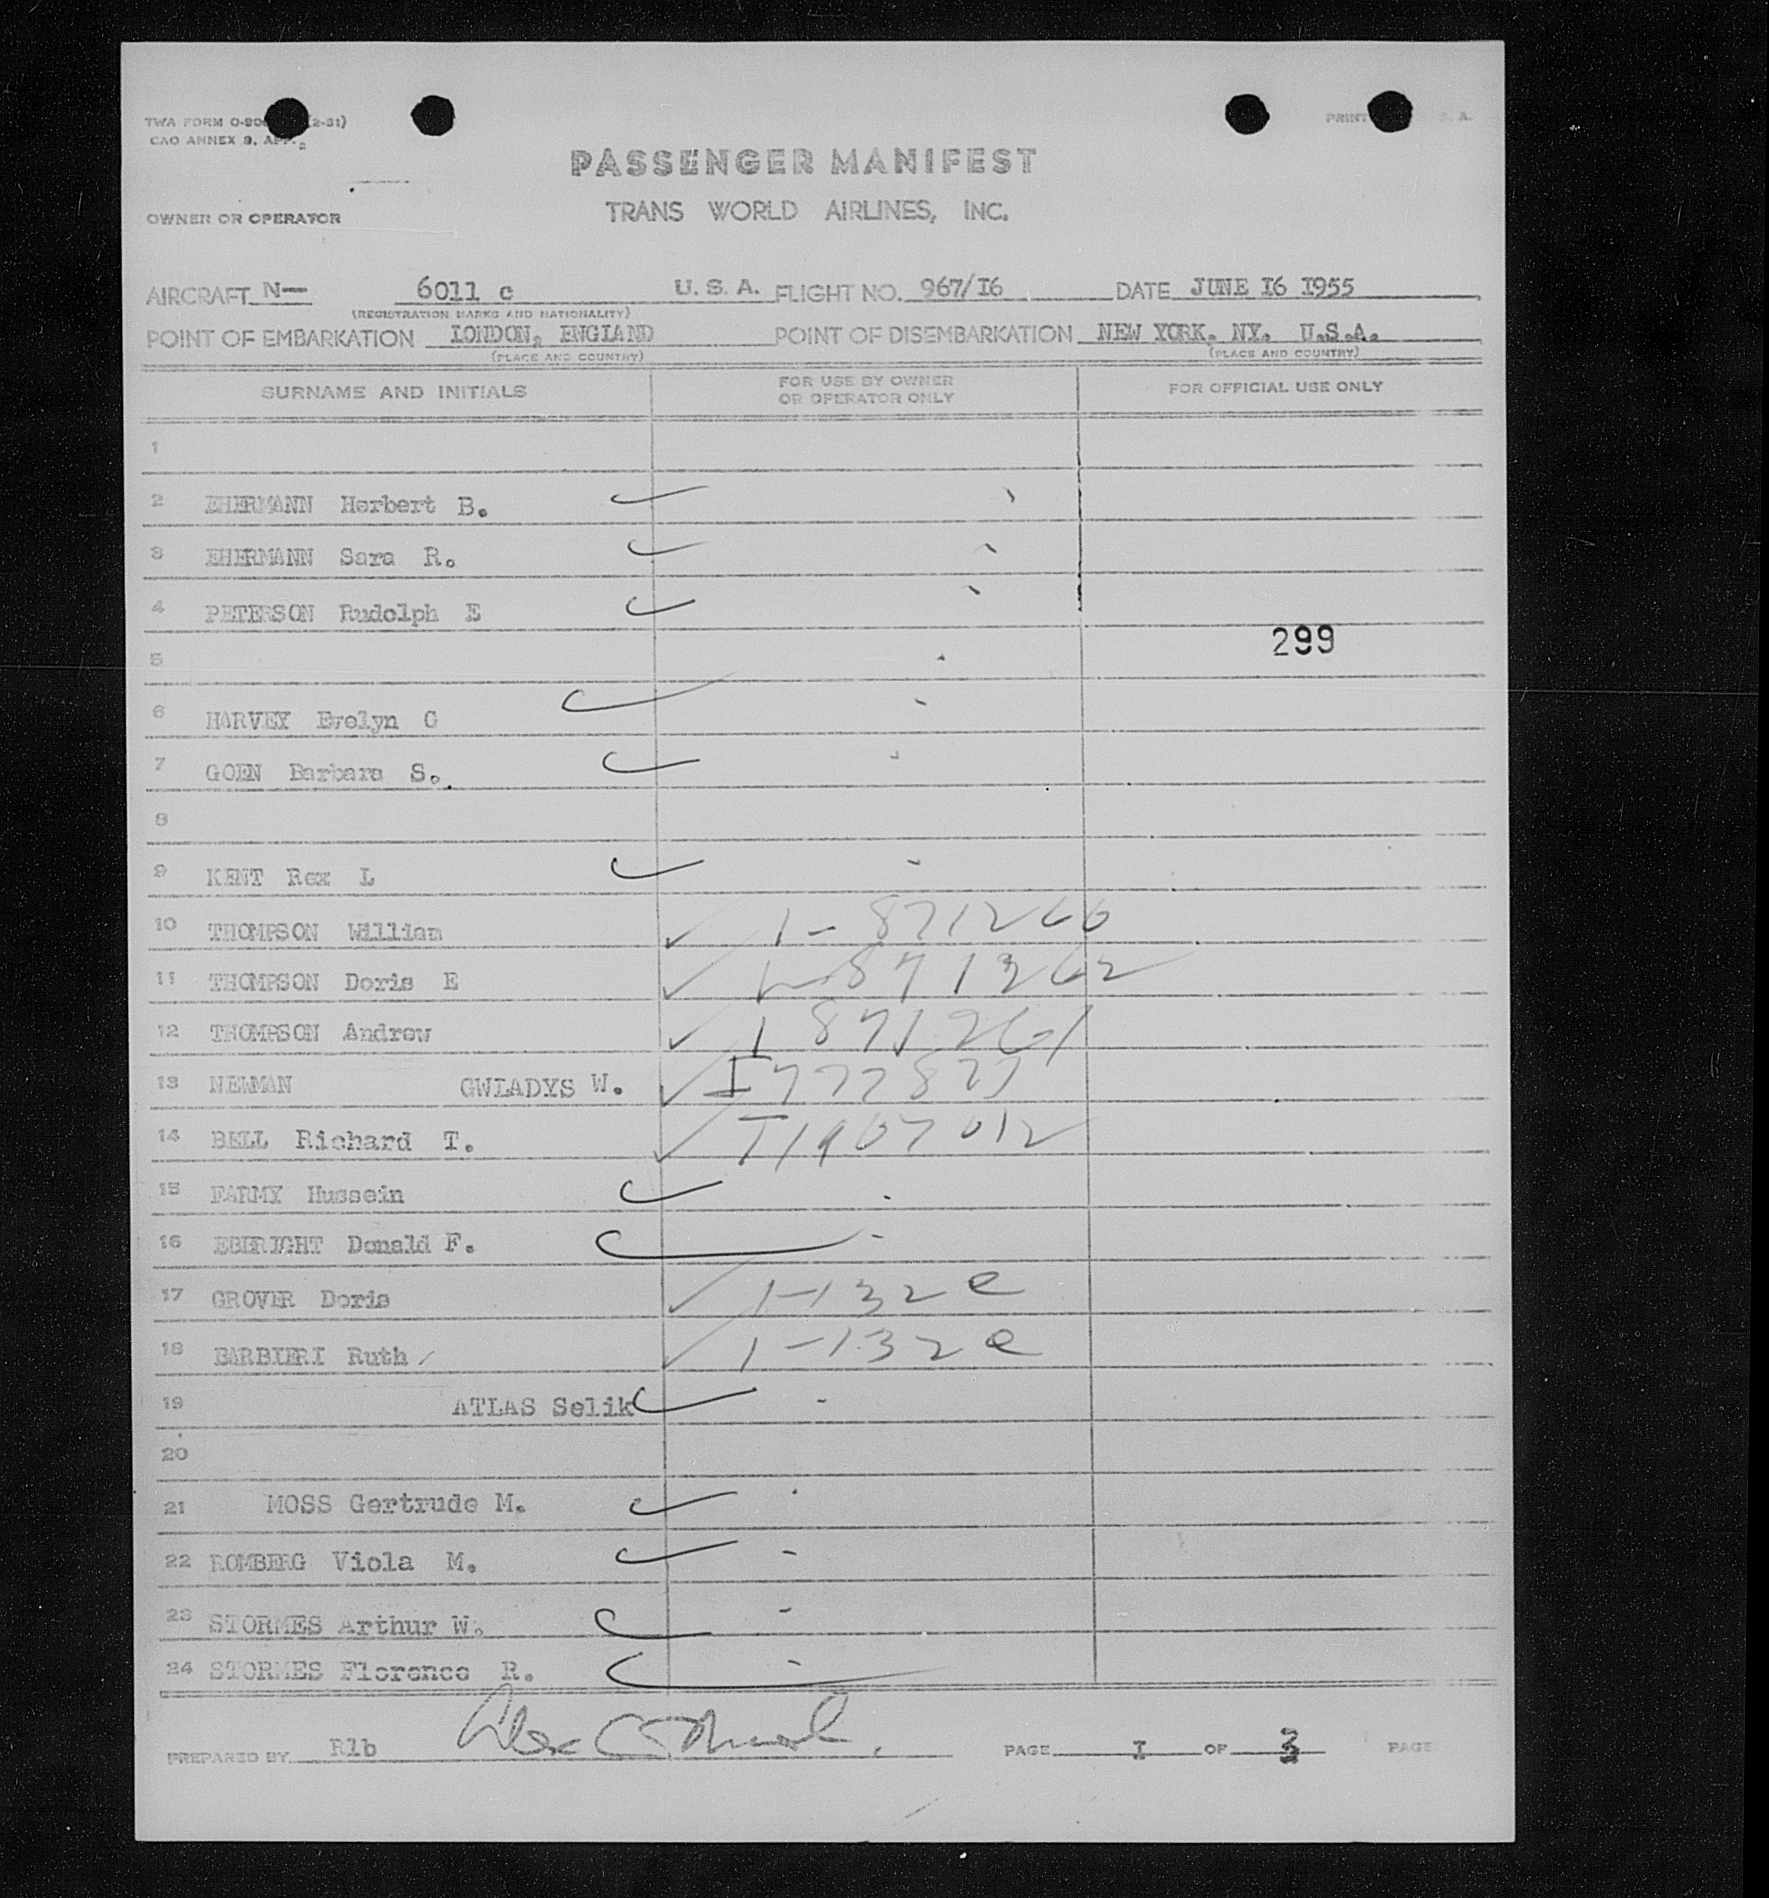 TWA FORM O-90 (2-51)
CAO ANNEX 9, APP. 2
PRINT S. A.
PASSENGER MANIFEST
OWNER OR OPERATOR
TRANS WORLD AIRLINES, INC.
AIRCRAFT N— 6011 c U. S. A. FLIGHT NO. 967/I6 DATE JUNE I6 I955
(REGISTRATION MARKS AND NATIONALITY)
POINT OF EMBARKATION LONDON, ENGLAND POINT OF DISEMBARKATION NEW YORK. NY. U.S.A.
(PLACE AND COUNTRY) (PLACE AND COUNTRY)
SURNAME AND INITIALS FOR USE BY OWNER OR OPERATOR ONLY FOR OFFICIAL USE ONLY
1
2 EHERMANN Herbert B.
3 EHERMANN Sara R.
4 PETERSON Rudolph E
299
5
6 HARVEY Evelyn C
7 GOEN Barbara S.
8
9 KENT Rex L
10 THOMPSON William 1-871266
11 THOMPSON Doris E 1-871262
12 THOMPSON Andrew 1 871261
13 NEWMAN GWLADYS W. I772827
14 BELL Richard T. T1907012
15 FARMY Hussein
16 EBERIGHT Donald F.
17 GROVER Doris 1-132 e
18 BARBIERI Ruth 1-132 e
19 ATLAS Selik
20
21 MOSS Gertrude M.
22 ROMBERG Viola M.
23 STORMES Arthur W.
24 STORMES Florence R.
PREPARED BY Rlb PAGE I OF 3 PAGE